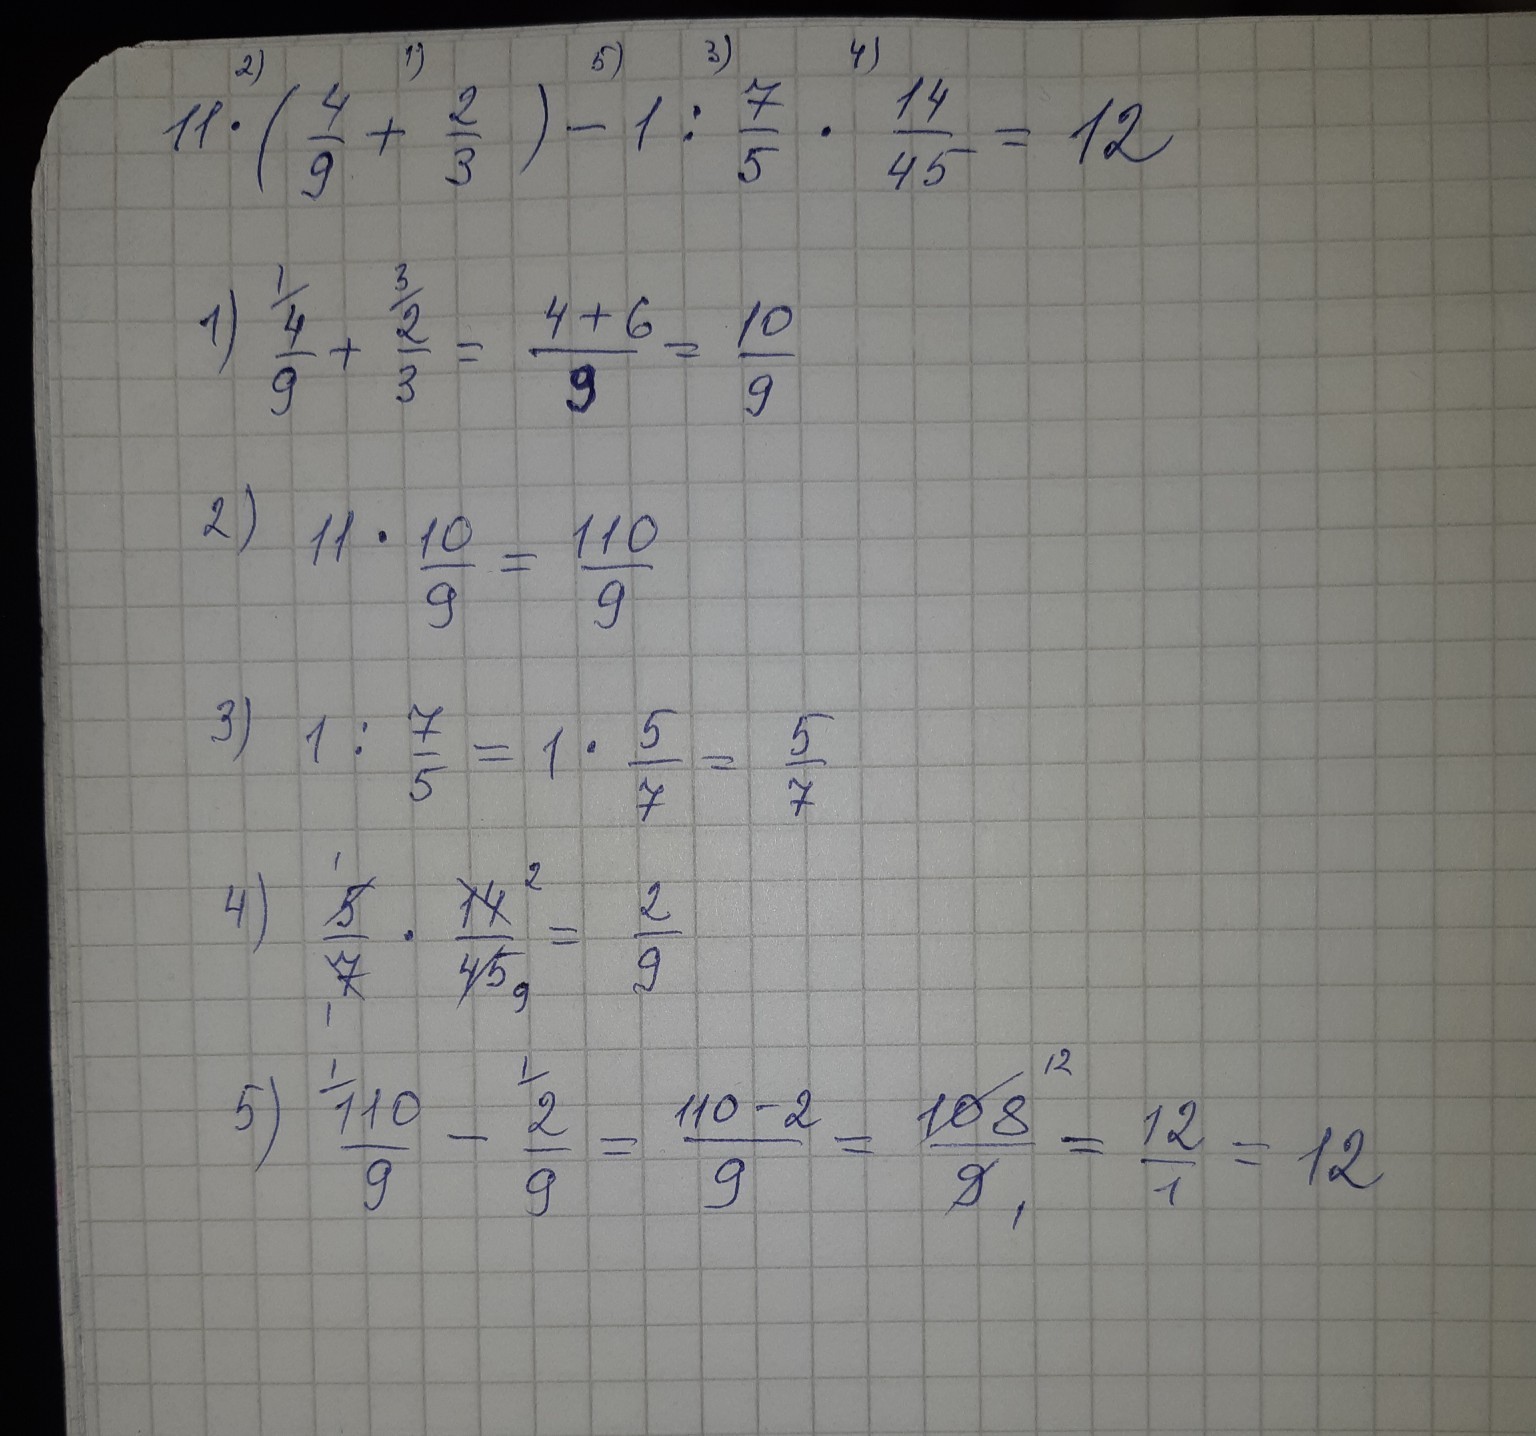 2) 1) 5) 3) 4)
11 · ( 4/9 + 2/3 ) - 1 : 7/5 · 14/45 = 12
1) 1/ 4/9 + 3/ 2/3 = 4+6/9 = 10/9
2) 11 · 10/9 = 110/9
3) 1 : 7/5 = 1 · 5/7 = 5/7
4) 1 5/7 1 · 14 2/45 9 = 2/9
5) 1/ 110/9 - 1/ 2/9 = 110-2/9 = 108 12/9 1 = 12/1 = 12